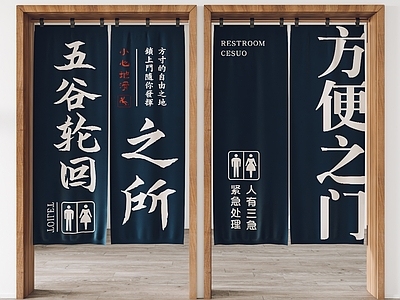 五谷轮回
之所
小心地滑
方寸的自由之地
鎖上門隨你發揮
TOILET
RESTROOM
CESUO
方便之门
人有三急
紧急处理